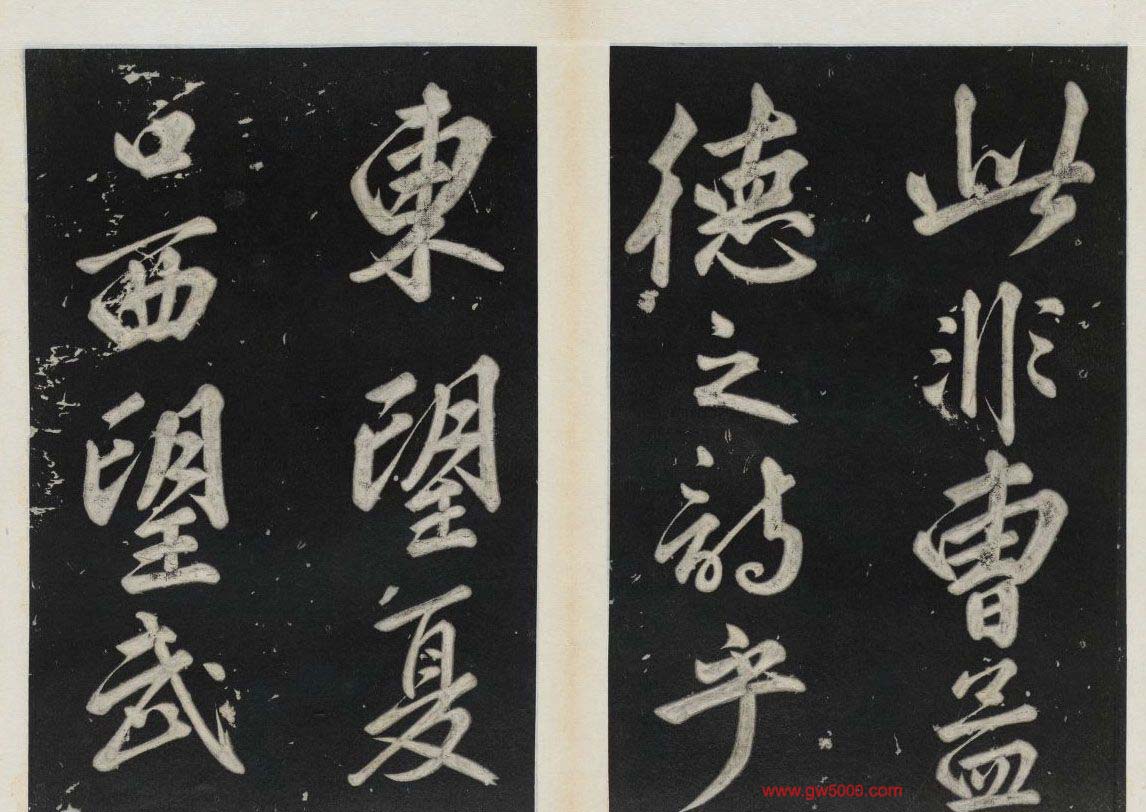 此非曹孟
德之詩乎
東望夏
口西望武
www.gw5000.com